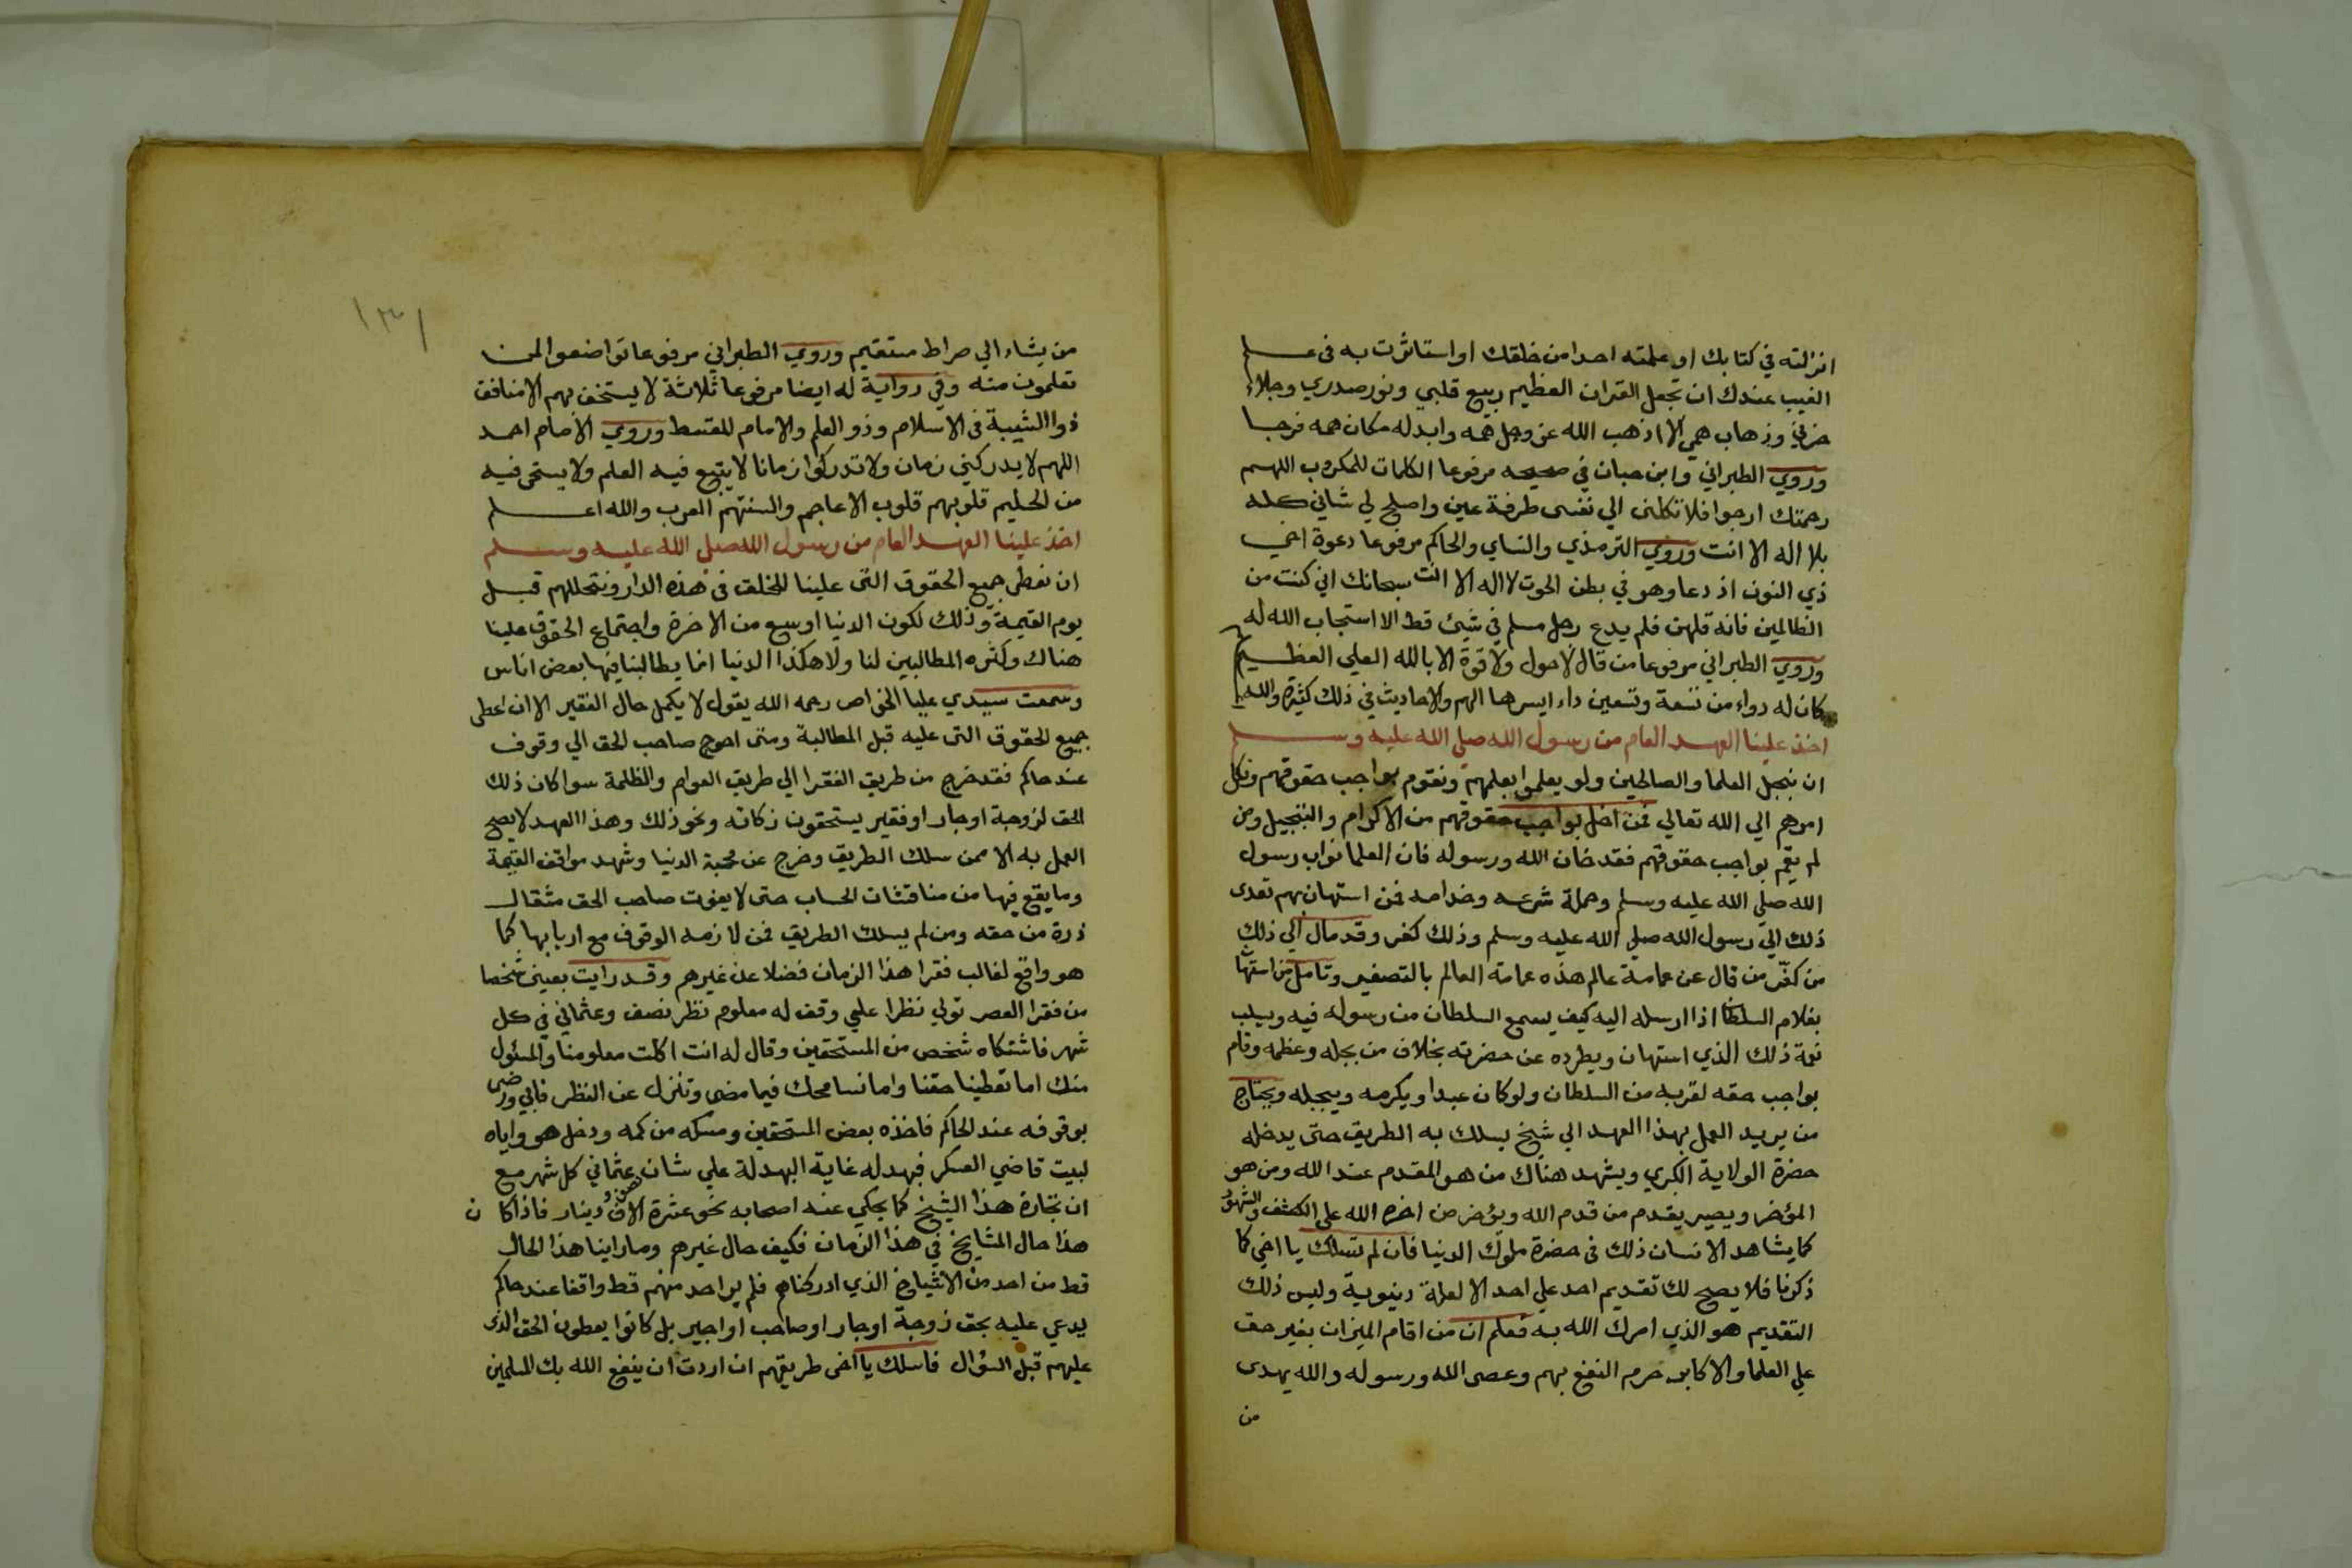 انزلته في كتابك او علمته احدا من خلقك او استاثرت به في علم
الغيب عندك ان تجعل القران العظيم ربيع قلبي ونور صدري وجلاء
حزني وذهاب همي الا اذهب الله عز وجل همه وابدله مكان همه فرجا
وروي الطبراني وابن حبان في صحيحه مرفوعا الكلمات للمكروب اللهم
رحمتك ارجوا فلا تكلني الي نفسي طرفة عين واصلح لي شاني كله
بلا اله الا انت وروي الترمذي والنساي والحاكم مرفوعا دعوة اخي
ذي النون اذ دعا وهو في بطن الحوت لا اله الا انت سبحانك اني كنت من
الظالمين فانه قلهن فلم يدع رجل مسلم في شيئ قط الا استجاب الله له
وروي الطبراني مرفوعا من قال لاحول ولا قوة الا بالله العلي العظيم
كان له دواء من تسعة وتسعين داء ايسرها الهم والاحاديث في ذلك كثيرة والله
اخذ علينا العهد العام من رسول الله صلي الله عليه وسلم
ان نبجل العلما والصالحين ولو يعلموا بعلمهم ونقوم بواجب حقوقهم ونكل
امرهم الي الله تعالي فمن اخل بواجب حقوقهم من الاكرام والتبجيل ومن
لم يقم بواجب حقوقهم فقد خان الله ورسوله فان العلما نواب رسول
الله صلي الله عليه وسلم وحملة شرعه وخدامه فمن استهان بهم تعدى
ذلك الي رسول الله صلي الله عليه وسلم وذلك كفر وقد مال الي ذلك
من كفّر من قال عن عمامة عالم هذه عمامة العالم بالتصغير وتامل من استهان
بغلام السلطان اذا ارسله اليه كيف يسمع السلطان من رسوله فيه ويسلب
نعمة ذلك الذي استهان ويطرده عن حضرته بخلاف من بجله وعظمه وقام
بواجب حقه لقربه من السلطان ولو كان عبدا ويكرمه ويبجله ويحتاج
من يريد العمل بهذا العهد الي شيخ يسلك به الطريق حتي يدخله
حضرة الولاية الكبري ويشهد هناك من هو المقدم عند الله ومن هو
المؤخر ويصير يقدم من قدم الله ويؤخر من اخره الله علي الكشف والشهود
كما يشاهد الانسان ذلك في حضرة ملوك الدنيا فان لم تسلك يا اخي كما
ذكرنا فلا يصح لك تقديم احد علي احد الا لعلة دنيوية وليس ذلك
التقديم هو الذي امرك الله به فعلم ان من اقام الميزان بغير حق
علي العلما والاكابر حرم النفع بهم وعصي الله ورسوله والله يهدى
من
١٣١
من يشاء الي صراط مستقيم وروي الطبراني مرفوعا تواضعوا لمن
تعلمون منه وفي رواية له ايضا مرفوعا ثلاثة لا يستخف بهم الا منافق
ذوا الشيبة في الاسلام وذو العلم والامام المقسط وروي الامام احمد
اللهم لا يدركني زمان ولا تدركوا زمانا لا يتبع فيه العلم ولا يستحي فيه
من الحليم قلوبهم قلوب الاعاجم والسنتهم العرب والله اعلم
اخذ علينا العهد العام من رسول الله صلي الله عليه وسلم
ان نعطي جميع الحقوق التي علينا للخلق في هذه الدار ونتحللهم قبل
يوم القيمة وذلك لكون الدنيا اوسع من الاخرة واجتماع الحقوق علينا
هناك وكثره المطالبين لنا ولا هكذا الدنيا انما يطالبنا فيها بعض اناس
وسمعت سيدي عليا الخواص رحمه الله يقول لا يكمل حال الفقير الا ان اعطى
جميع الحقوق التي عليه قبل المطالبة ومتى احوج صاحب الحق الي وقوف
عند حاكم فقد خرج من طريق الفقرا الي طريق العوام والظلمة سوا كان ذلك
الحق لزوجة او جار او فقير يستحقون زكاته ونحو ذلك وهذا العهد لا يصح
العمل به الا ممن سلك الطريق وخرج عن محبة الدنيا وشهد مواقف القيمة
وما يقع فيها من مناقشات الحساب حتي لا يفوت صاحب الحق مثقال
ذرة من حقه ومن لم يسلك الطريق فمن لازمه الوقوف مع اربابها كما
هو واقع لغالب فقرا هذا الزمان فضلا عن غيرهم وقد رايت بعيني شخصا
من فقرا العصر تولي نظرا علي وقف له معلوم نظر نصف وعثماني في كل
شهر فاشتكاه شخص من المستحقين وقال له انت اكلت معلومنا والمسئول
منك اما تعطينا حقنا واما نسامحك فيما مضى وتنزل عن النظر فابي ورضى
بوقوفه عند الحاكم فاخذه بعض المستحقين ومسكه من كمه ودخل هو واياه
لبيت قاضي العسكر فبهدله غاية البهدلة علي شان عثماني كل شهر مع
ان تجارة هذا الشيخ كما يحكي عنه اصحابه نحو عشرة الاف دينار فاذا كان
هذا حال المشايخ في هذا الزمان فكيف حال غيرهم وما راينا هذا الحال
قط من احد من الاشياخ الذي ادركناهم فلم ير احد منهم قط واقفا عند حاكم
يدعي عليه بحق زوجة او جار او صاحب او اجير بل كانوا يعطون الحق الذى
عليهم قبل السؤال فاسلك يا اخى طريقهم ان اردت ان ينفع الله بك المسلمين